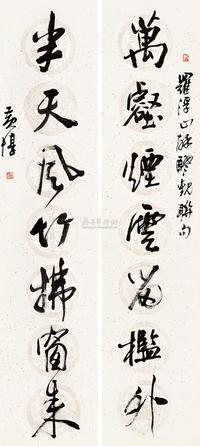 羅浮山酥醪觀聯句
萬壑煙雲留檻外
半天風竹拂窗來
黃惇